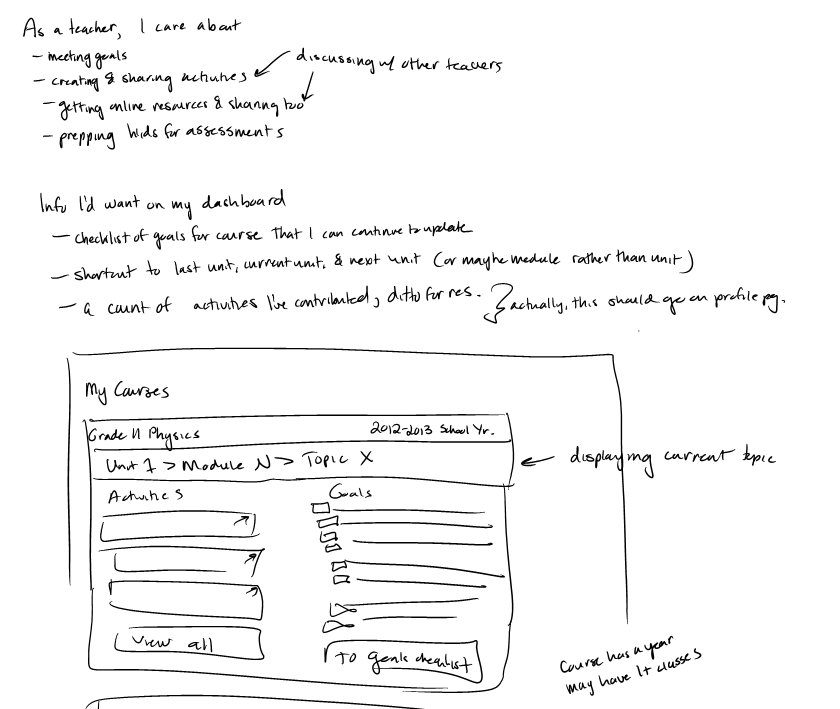 As a teacher, I care about
- meeting goals
- creating & sharing activities
discussing w/ other teachers
- getting online resources & sharing too
- prepping kids for assessments
Info I'd want on my dashboard
- checklist of goals for course that I can continue to update
- shortcut to last unit, current unit, & next unit (or maybe module rather than unit)
- a count of activities I've contributed, ditto for res. } actually, this should go on profile pg.
My Courses
Grade 11 Physics 2012-2013 School Yr.
Unit 1 > Module N > Topic X
displaying current topic
Activities Goals
View all
To goals checklist
Course has a year
may have 1+ classes